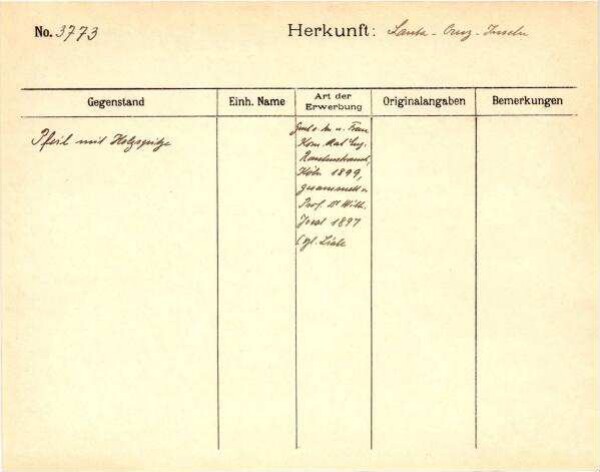 No. 3773
Herkunft: Santa-Cruz-Inseln
Gegenstand
Einh. Name
Art der
Erwerbung
Originalangaben
Bemerkungen
Pfeil mit Holzspitze
u. Frau
Kom. Rat Eug.
Rautenstrauch,
Köln 1899,
gesammelt v.
Prof. Dr Wilh.
Joest 1897
Liste